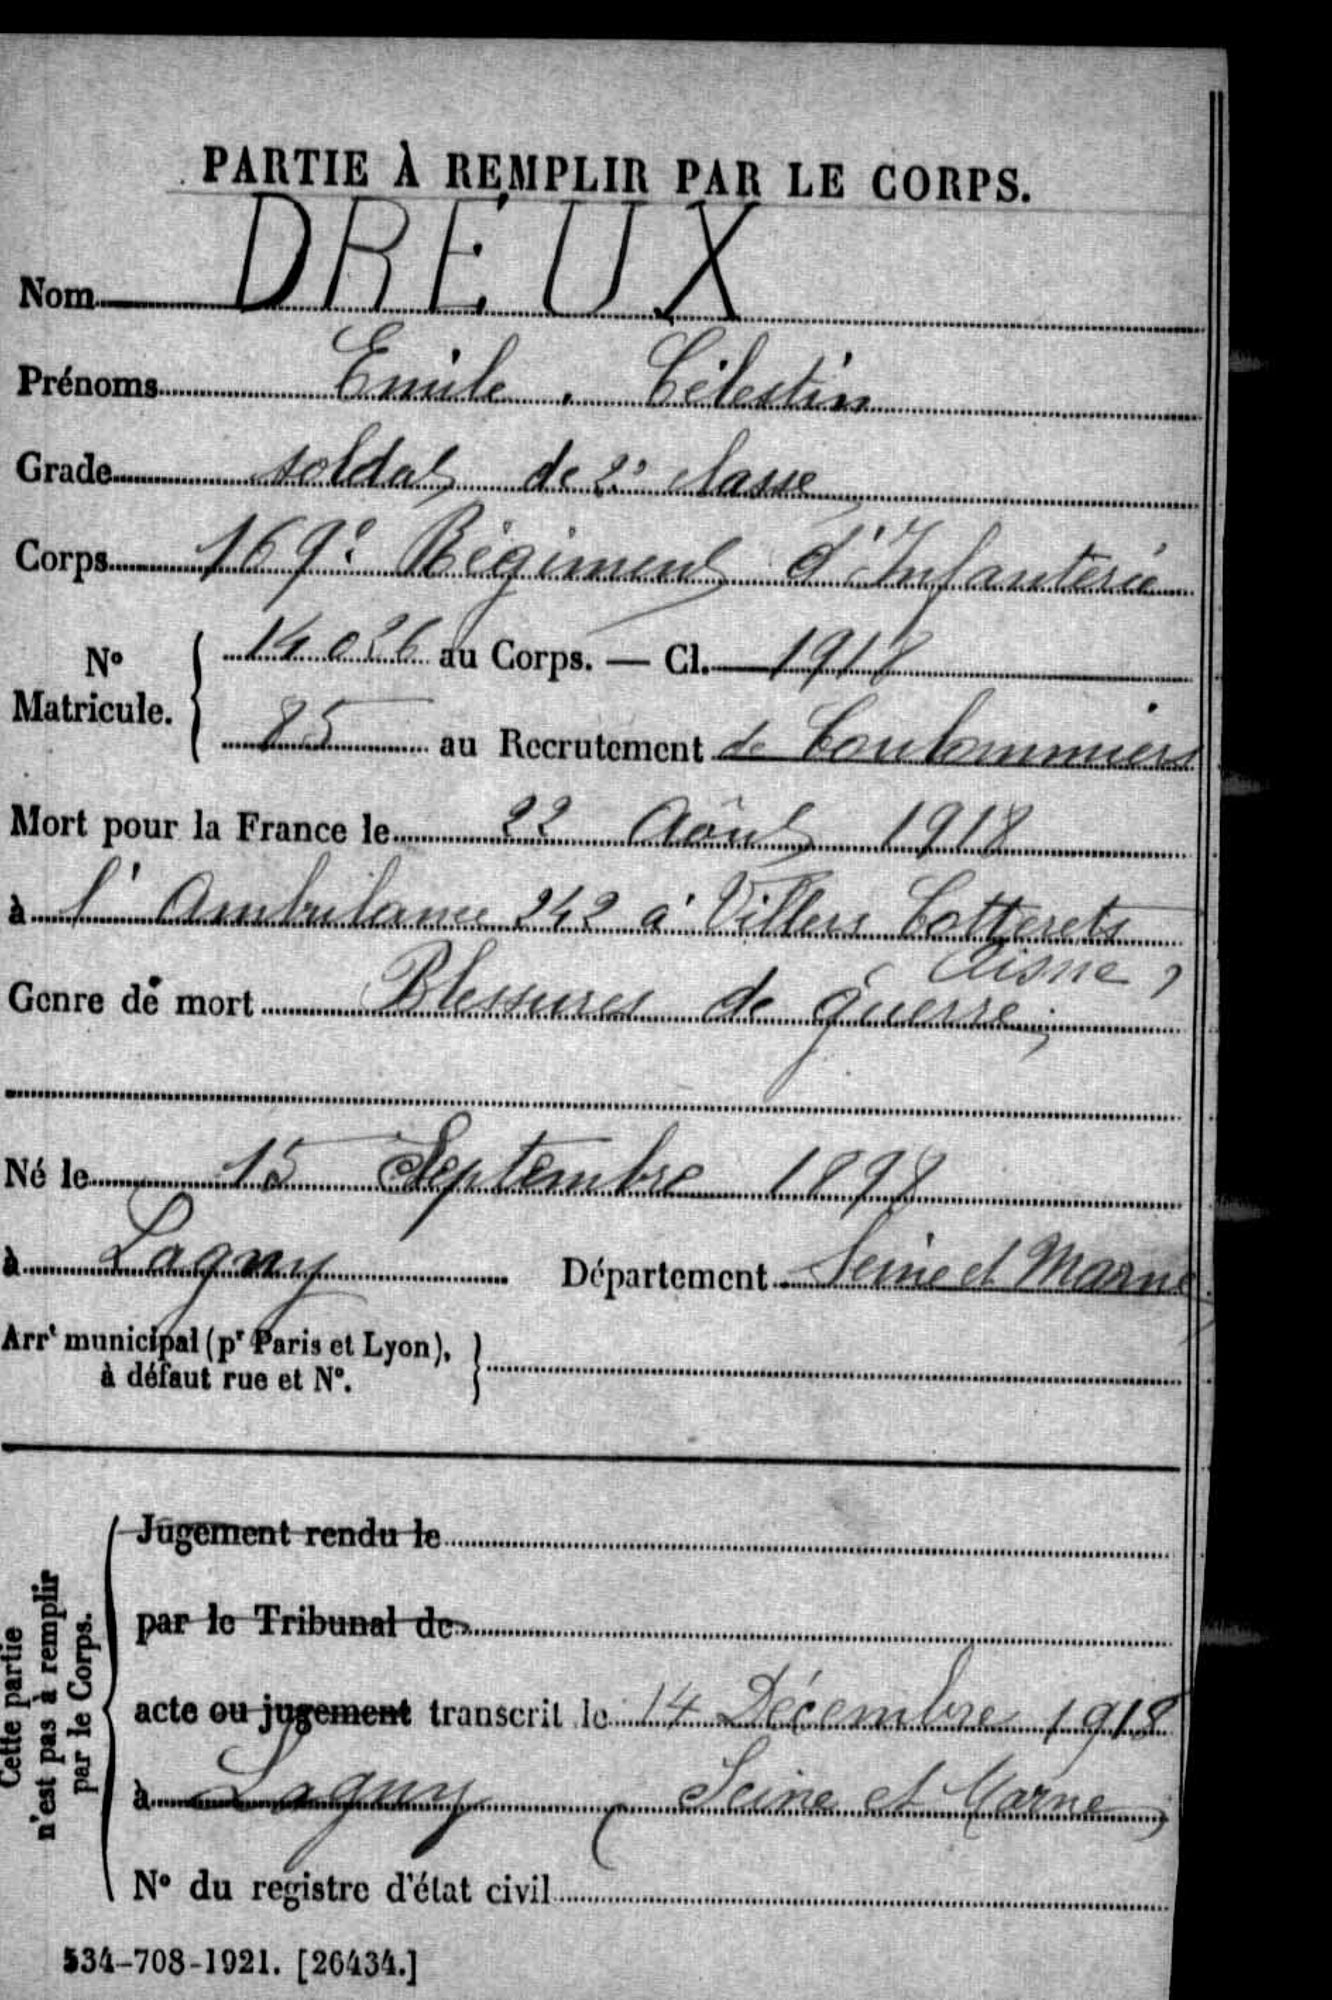 PARTIE À REMPLIR PAR LE CORPS.
Nom DREUX
Prénoms Emile, Célestin
Grade soldat de 2e classe
Corps 169e Régiment d'Infanterie
N° Matricule. 14026 au Corps. — Cl. 1918
85 au Recrutement de Coulommiers
Mort pour la France le 22 Août 1918
à l'Ambulance 242 à Villers Cotterets
(Aisne)
Genre de mort Blessures de guerre
Né le 15 Septembre 1898
à Lagny Département Seine et Marne
Arrt municipal (pr Paris et Lyon),
à défaut rue et N°.
Cette partie
n'est pas à remplir
par le Corps.
Jugement rendu le
par le Tribunal de
acte ou jugement transcrit le 14 Décembre 1918
à Lagny (Seine et Marne)
N° du registre d'état civil
534-708-1921. [26434.]